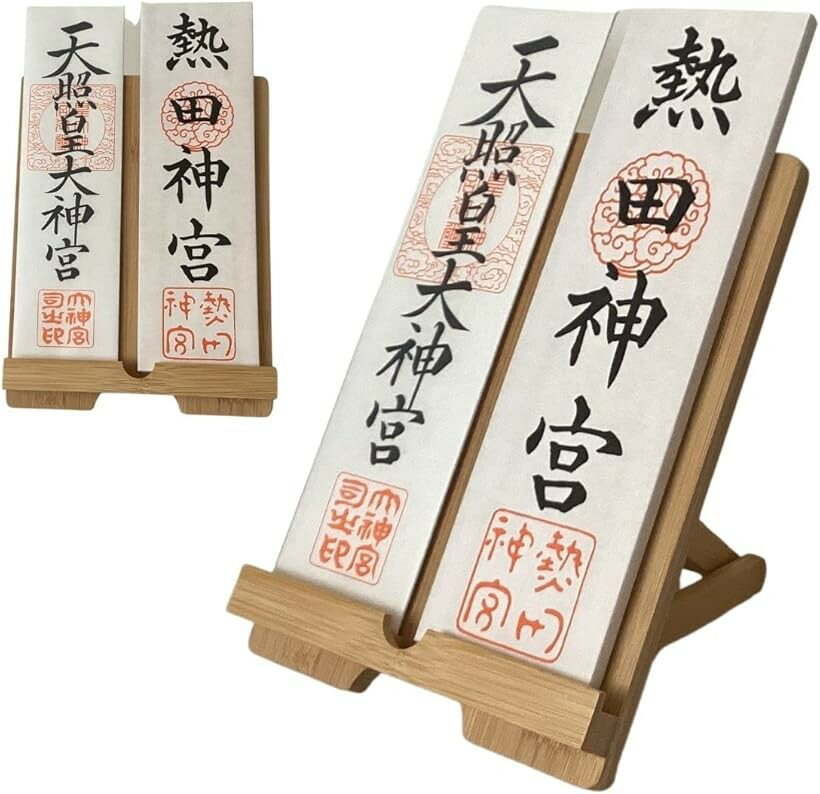 天照皇大神宮
大神宮司之印
熱田神宮
熱田神宮
天照皇大神宮
大神宮司之印
熱田神宮
熱田神宮